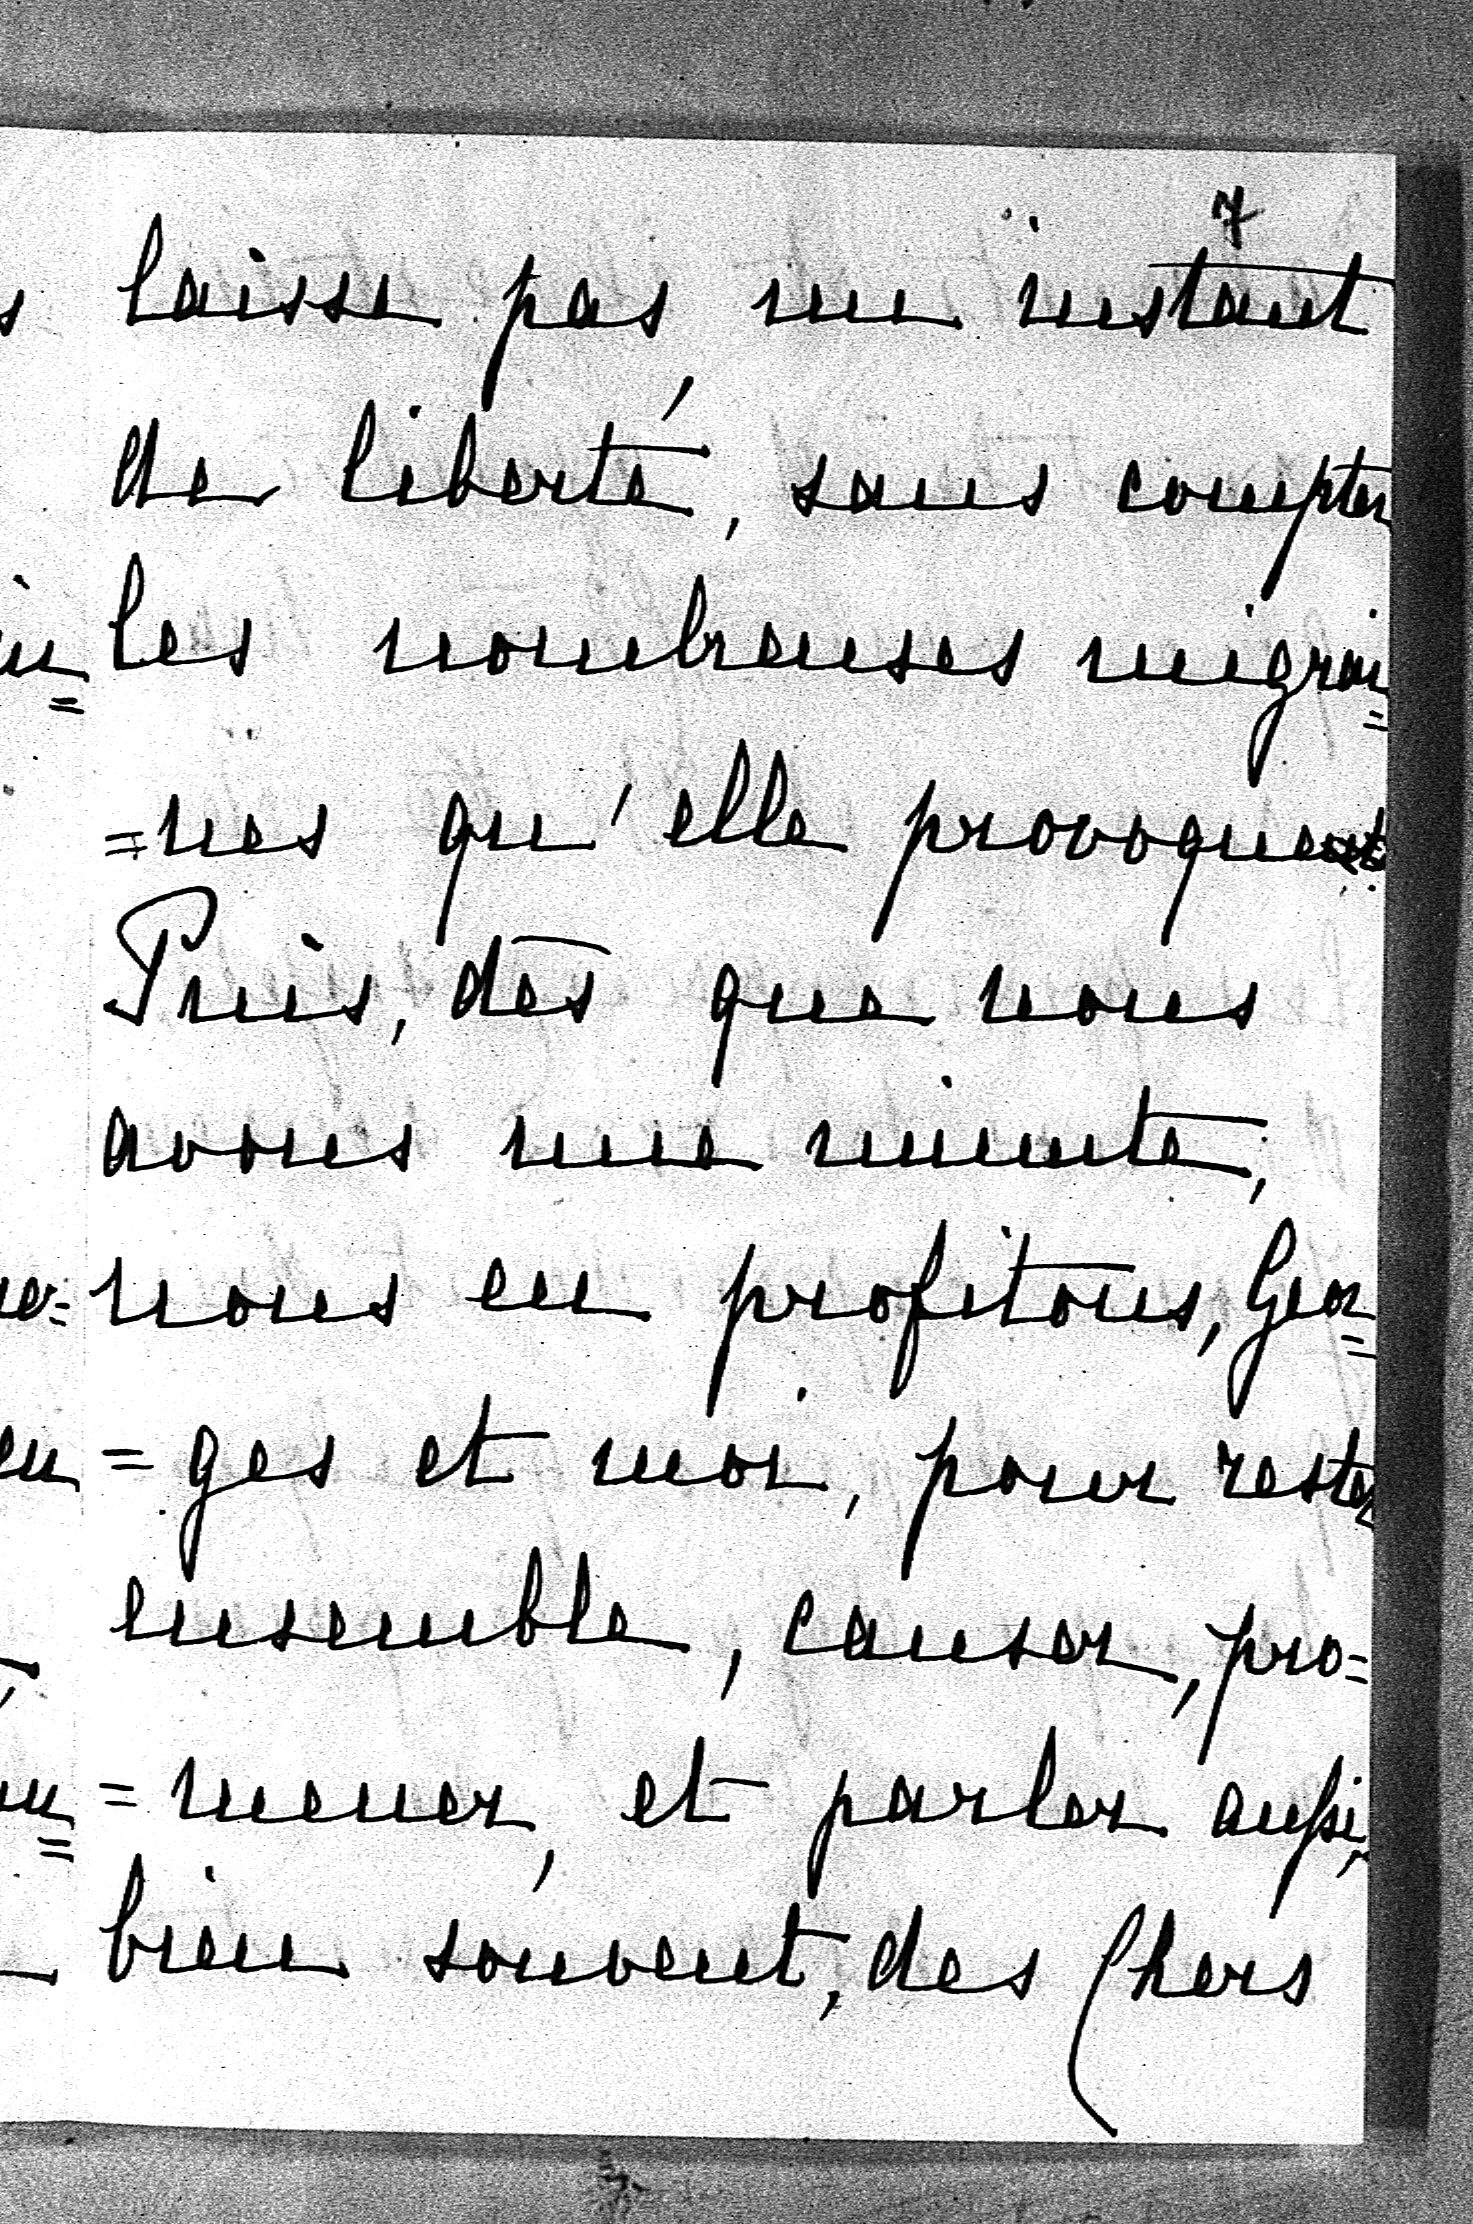 7
laisse pas un instant
de liberté, sans compter
les nombreuses migrai=
=nes qu'elle provoque
Puis, dès que nous
avons une minute,
nous en profitons, Geor=
=ges et moi, pour rester
ensemble, causer, pro=
=mener, et parler aussi,
bien souvent, des Chers